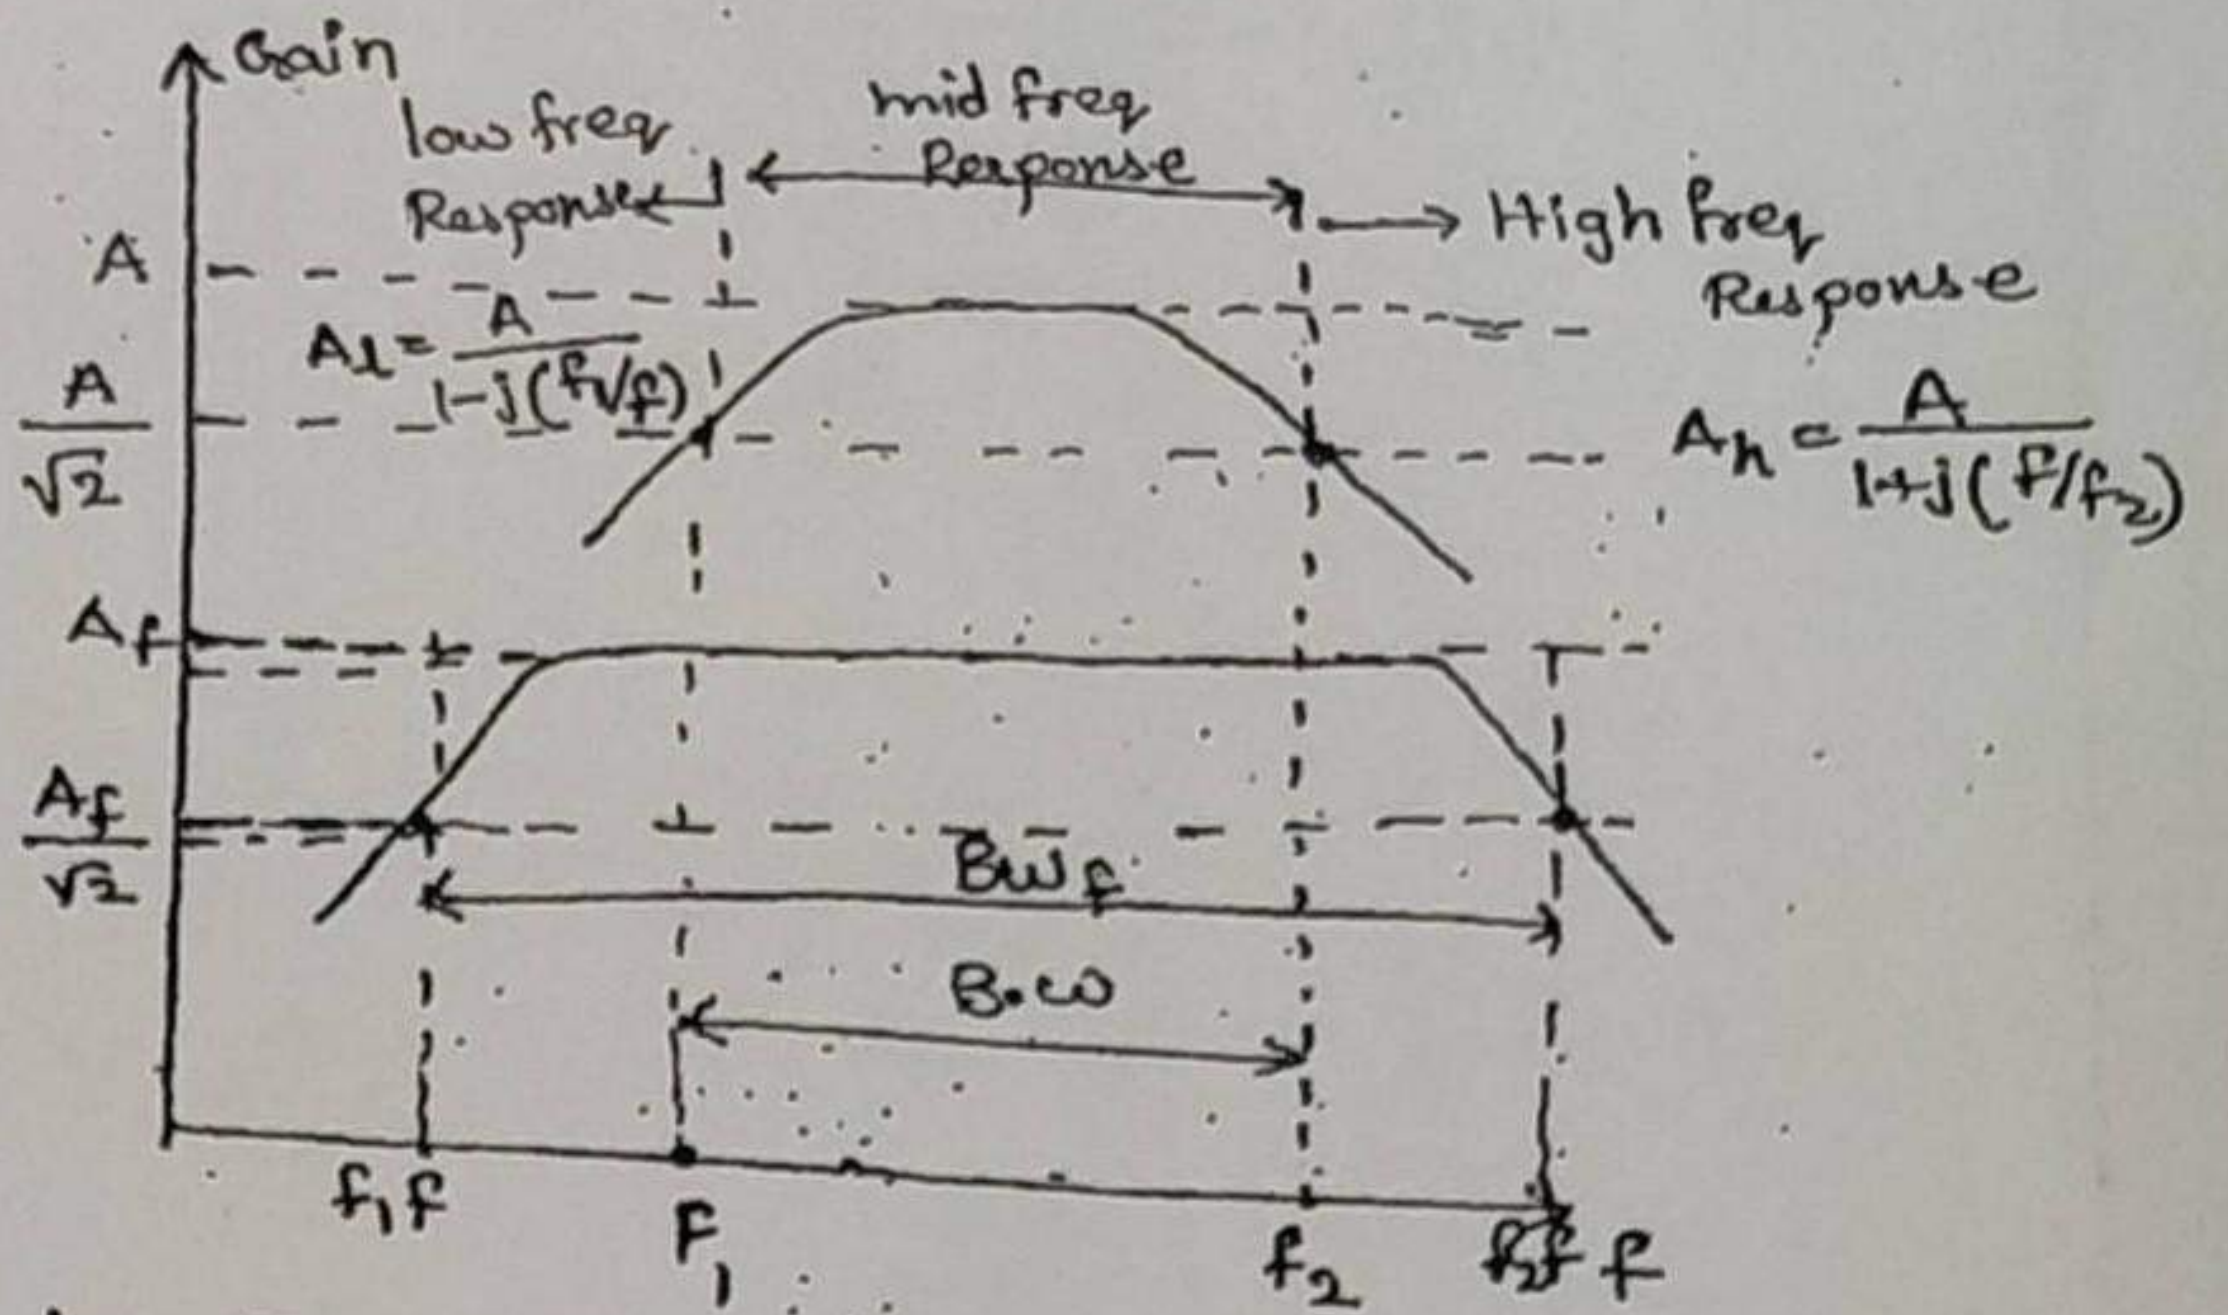 Gain
low freq
Response
mid freq
Response
High freq
Response
A
Al = A / 1-j(f1/f)
A / √2
Ah = A / 1+j(f/f2)
Af
Af / √2
BWf
B.W
f1f
F1
f2
f2f
f